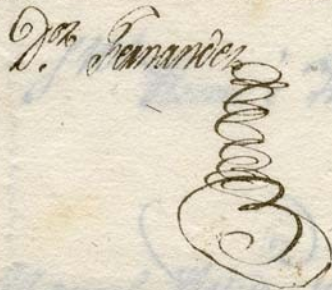 D.or Fernandez